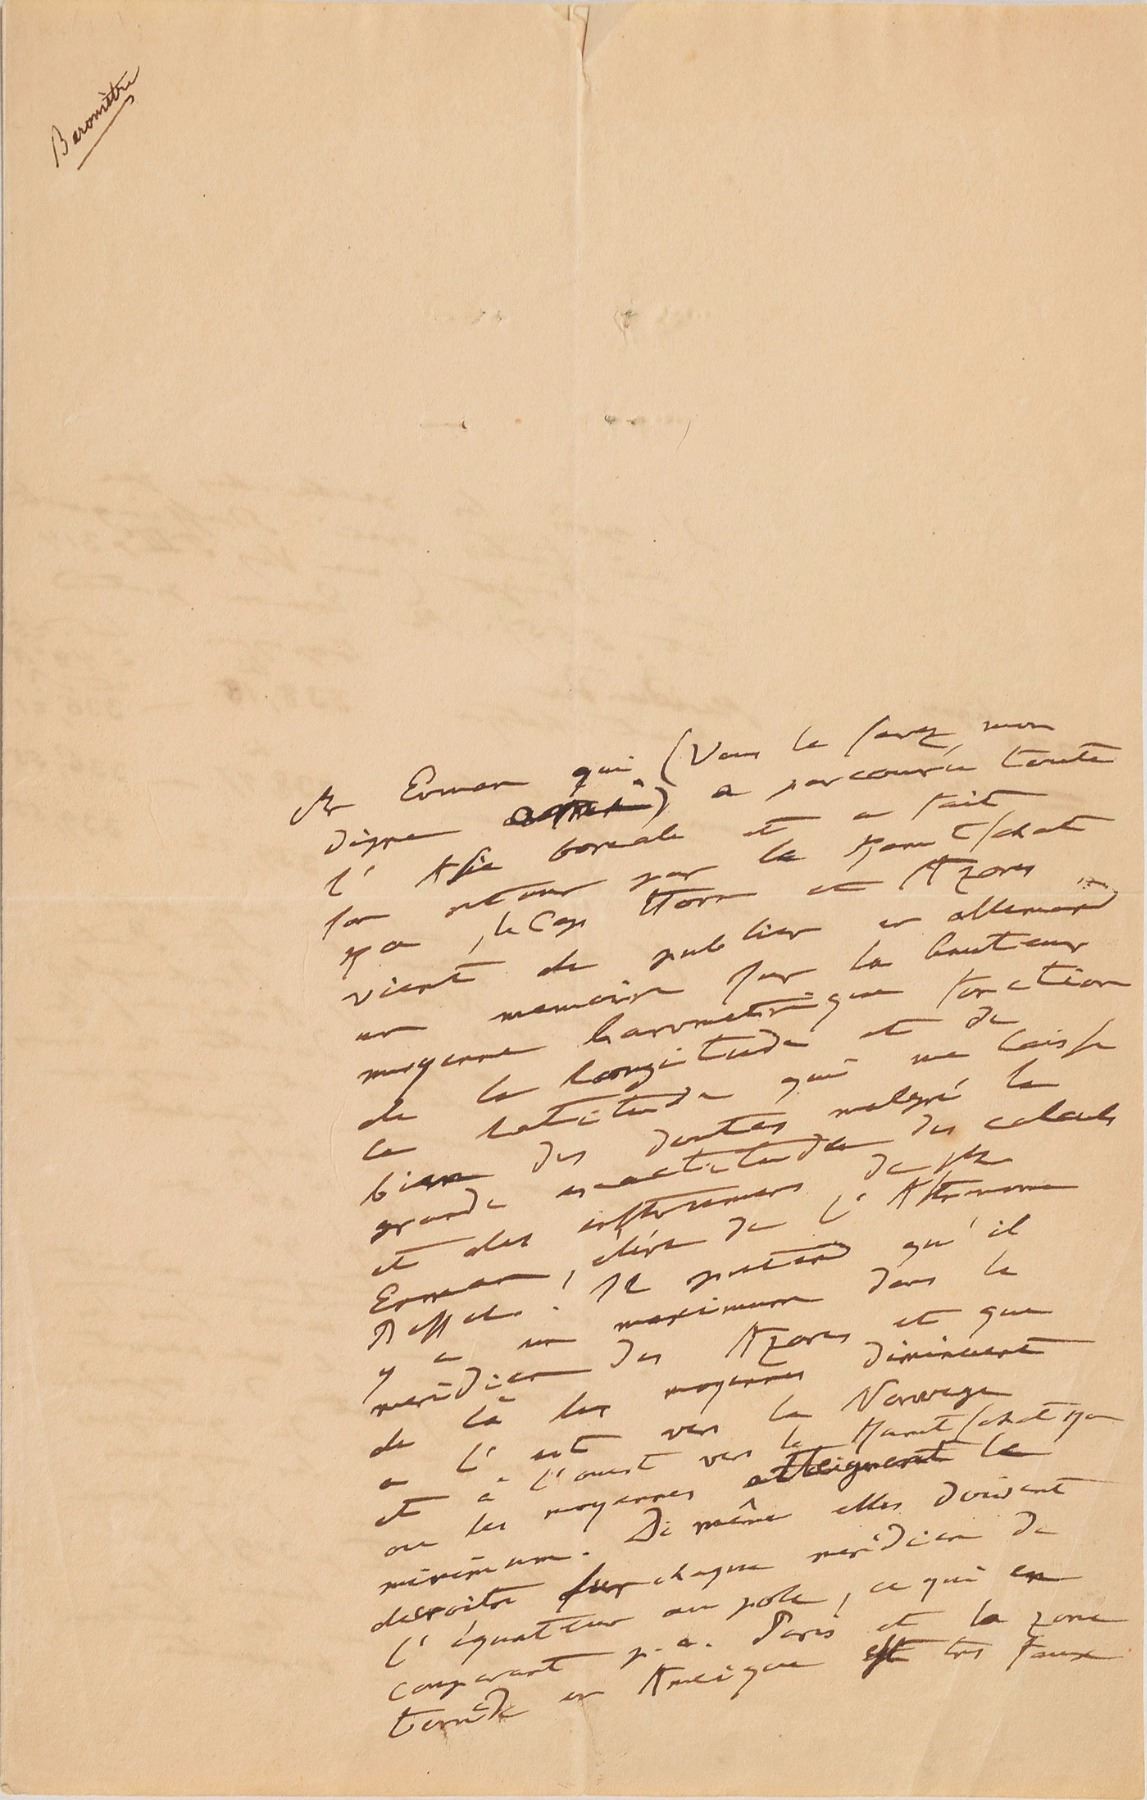 Baromètre
Mr Erman qui (Vous le savez mon
digne ami) a parcouru toute
l'Asie boreale et a fait
son retour par le Kamtschat
ka, le Cap Horn et Azores
vient de publier en allemand
un memoire sur la hauteur
moyenne barometrique fonction
de la longitude et de
la latitude qui me laisse
bien des doutes malgré la
grande exactitude des calculs
et des instrumens de Mr
Erman, éléve de l'Astronome
Bessel. Il pretend qu'il
y a un maximum dans le
meridien des Azores et que
de là les moyennes diminuent
a l'est vers la Norwege
et a l'ouest vers le Kamtschatka
ou les moyennes atteignent le
minimum. De même elles doivent
decroitre sur chaque meridien de
l'équateur au pole, ce qui en
comparant p.e. Paris et la zone
torride en Amerique est très faux